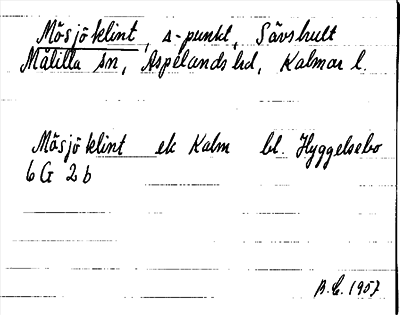 Mösjöklint, s-punkt, Sävshult
Målilla sn, Aspelands hd, Kalmar l.
Mösjöklint ek Kalm bl. Hyggelsebo
6 G 2 b
B.E. 1957